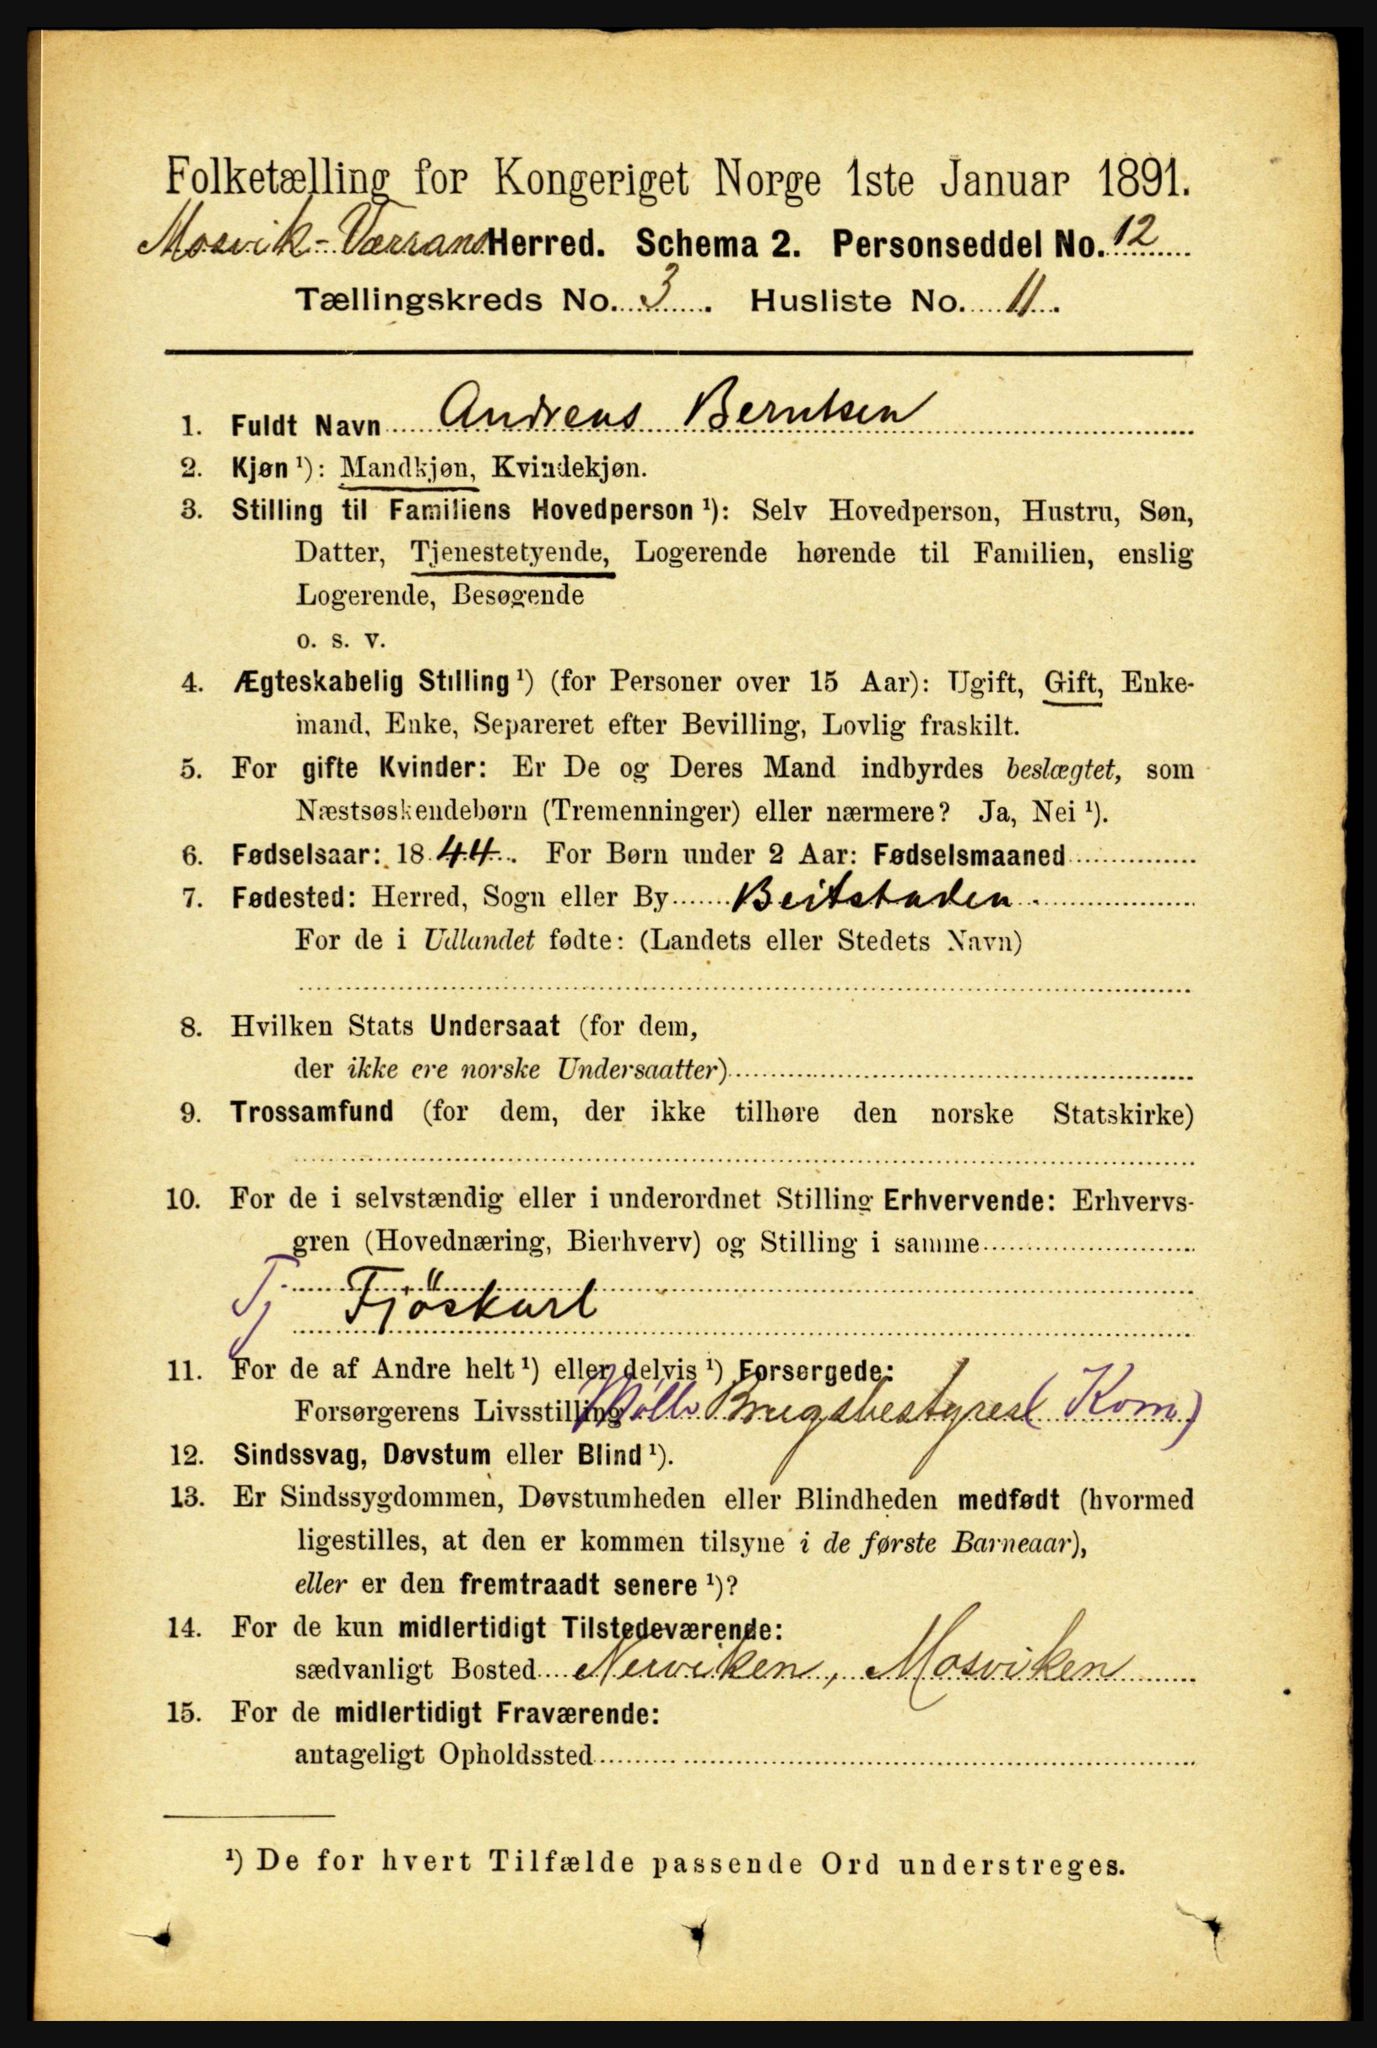 Folketælling for Kongeriget Norge 1ste Januar 1891.
Mosvik-Værrans Herred. Schema 2. Personseddel No. 12
Tællingskreds No. 3. Husliste No. 11.
1. Fuldt Navn Andreas Berntsen
2. Kjøn ¹): Mandkjøn, Kvindekjøn.
3. Stilling til Familiens Hovedperson ¹): Selv Hovedperson, Hustru, Søn,
Datter, Tjenestetyende, Logerende hørende til Familien, enslig
Logerende, Besøgende
o. s. v.
4. Ægteskabelig Stilling ¹) (for Personer over 15 Aar): Ugift, Gift, Enke-
mand, Enke, Separeret efter Bevilling, Lovlig fraskilt.
5. For gifte Kvinder: Er De og Deres Mand indbyrdes beslægtet, som
Næstsøskendebørn (Tremenninger) eller nærmere? Ja, Nei ¹).
6. Fødselsaar: 1844. For Børn under 2 Aar: Fødselsmaaned
7. Fødested: Herred, Sogn eller By Beitstaden.
For de i Udlandet fødte: (Landets eller Stedets Navn)
8. Hvilken Stats Undersaat (for dem,
der ikke ere norske Undersaatter)
9. Trossamfund (for dem, der ikke tilhøre den norske Statskirke)
10. For de i selvstændig eller i underordnet Stilling Erhvervende: Erhvervs-
gren (Hovednæring, Bierhverv) og Stilling i samme
Tj Fjöskarl
11. For de af Andre helt ¹) eller delvis ¹) Forsørgede:
Forsørgerens Livsstilling Brugsbestyrer (Kom)
12. Sindssvag, Døvstum eller Blind ¹).
13. Er Sindssygdommen, Døvstumheden eller Blindheden medfødt (hvormed
ligestilles, at den er kommen tilsyne i de første Barneaar),
eller er den fremtraadt senere ¹)?
14. For de kun midlertidigt Tilstedeværende:
sædvanligt Bosted Nerviken, Mosviken
15. For de midlertidigt Fraværende:
antageligt Opholdssted
¹) De for hvert Tilfælde passende Ord understreges.